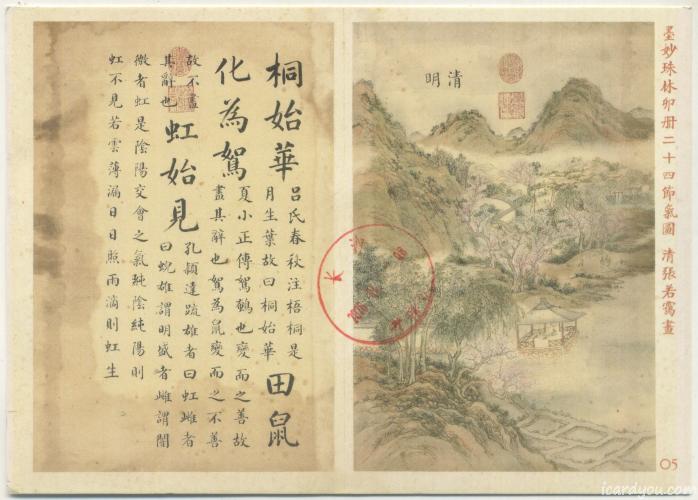 墨妙珠林卯冊二十四節氣圖 清張若靄畫
清明
桐始華
呂氏春秋注梧桐是
月生葉故曰桐始華
田鼠
化為鴽
夏小正傳鴽鵪也變而之善故
盡其辭也鴽為鼠變而之不善
故不盡
其辭也
虹始見
孔穎達疏雄者曰虹雌者
曰蜺雄謂明盛者雌謂闇
微者虹是陰陽交會之氣純陰純陽則
虹不見若雲薄漏日日照雨滴則虹生
05
icardyou.com